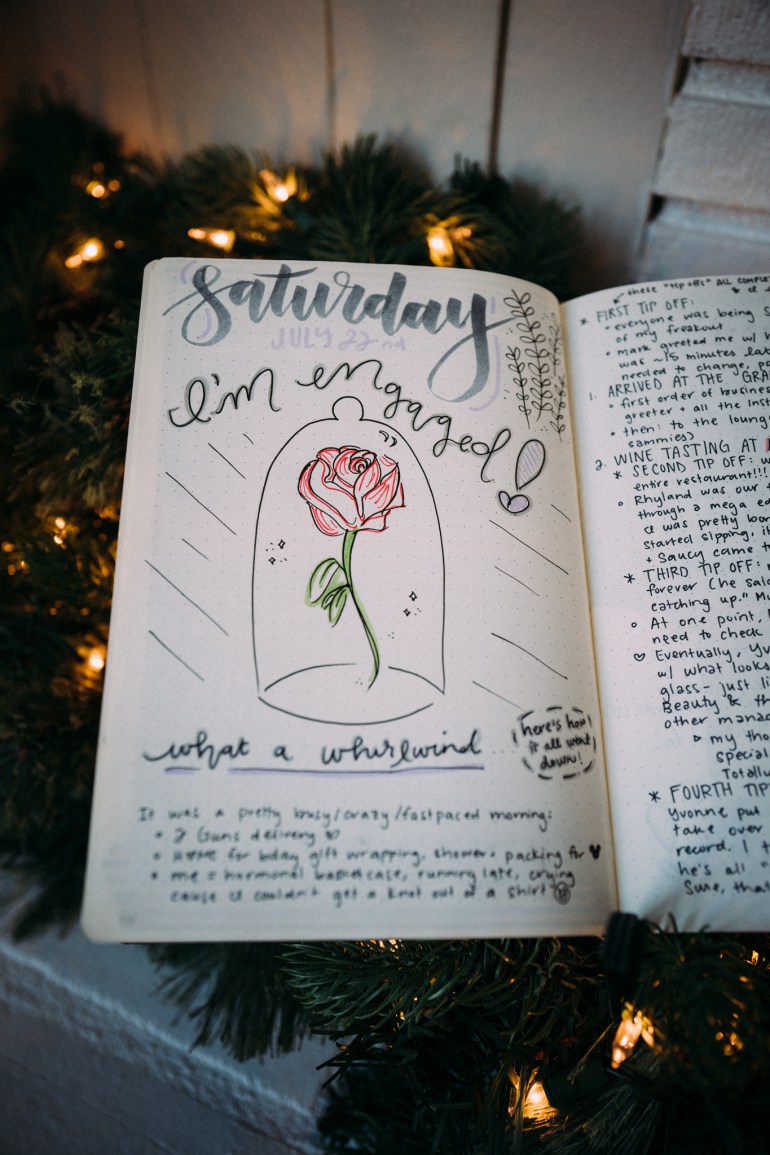 Saturday
JULY 22nd
I'm engaged!
what a whirlwind
here's how
it all went
down!
It was a pretty busy/crazy/fastpaced morning:
delivery
for bday gift wrapping, shower + packing for
me = hormonal basketcase, running late, crying
cause I couldn't get a knot out of a shirt
these "tip offs" ALL
* FIRST TIP OFF:
• everyone was being
of my freakout
• mark greeted me w/
was ~15 minutes
needed to change,
1. ARRIVED AT THE
• first order of
greeter + all the
• then: to the
sammies)
2. WINE TASTING AT
* SECOND TIP OFF:
entire restaurant!!!
○ Rhyland was our
through a mega
I was pretty
started sipping,
+ Saucy came
* THIRD TIP OFF:
forever (he
catching up."
○ At one point,
need to check
♡ Eventually,
w/ what looks
glass- just
Beauty & 
other
▷ my
special
Totally
* FOURTH TIP
Yvonne put
take over
record. I
he's all "
Sure,